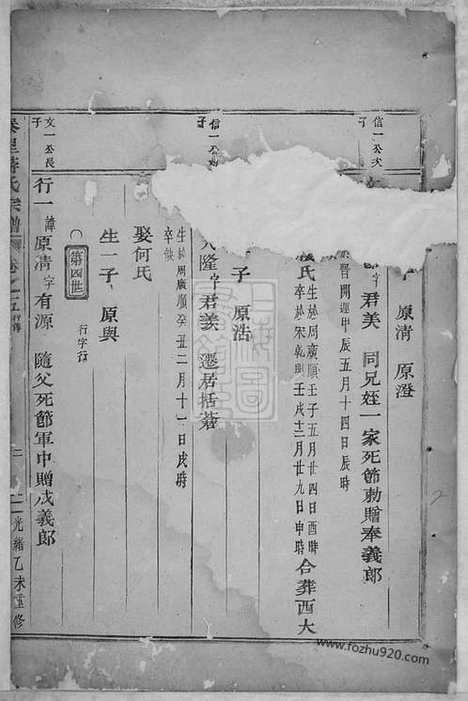 信一公次
子 原清 原澄
字君美 同兄姪一家死節勅贈奉義郎
晉開運甲辰五月十四日辰時
氏 生於周廣順壬子五月廿四日酉時
卒於宋乾 壬戌十二月廿九日申時 合葬西大
信一公
子
子 原浩
隆字君羨 遷居括蒼
生於周廣順癸丑二月十一日戌時
卒缺
娶何氏
生一子 原與
文一公長
子
第四世 行字行
行一 諱原清字有源 隨父死節軍中贈成義郎
氏宗譜 卷之五 行傳 二 光緒乙未重修
www.fozhu920.com